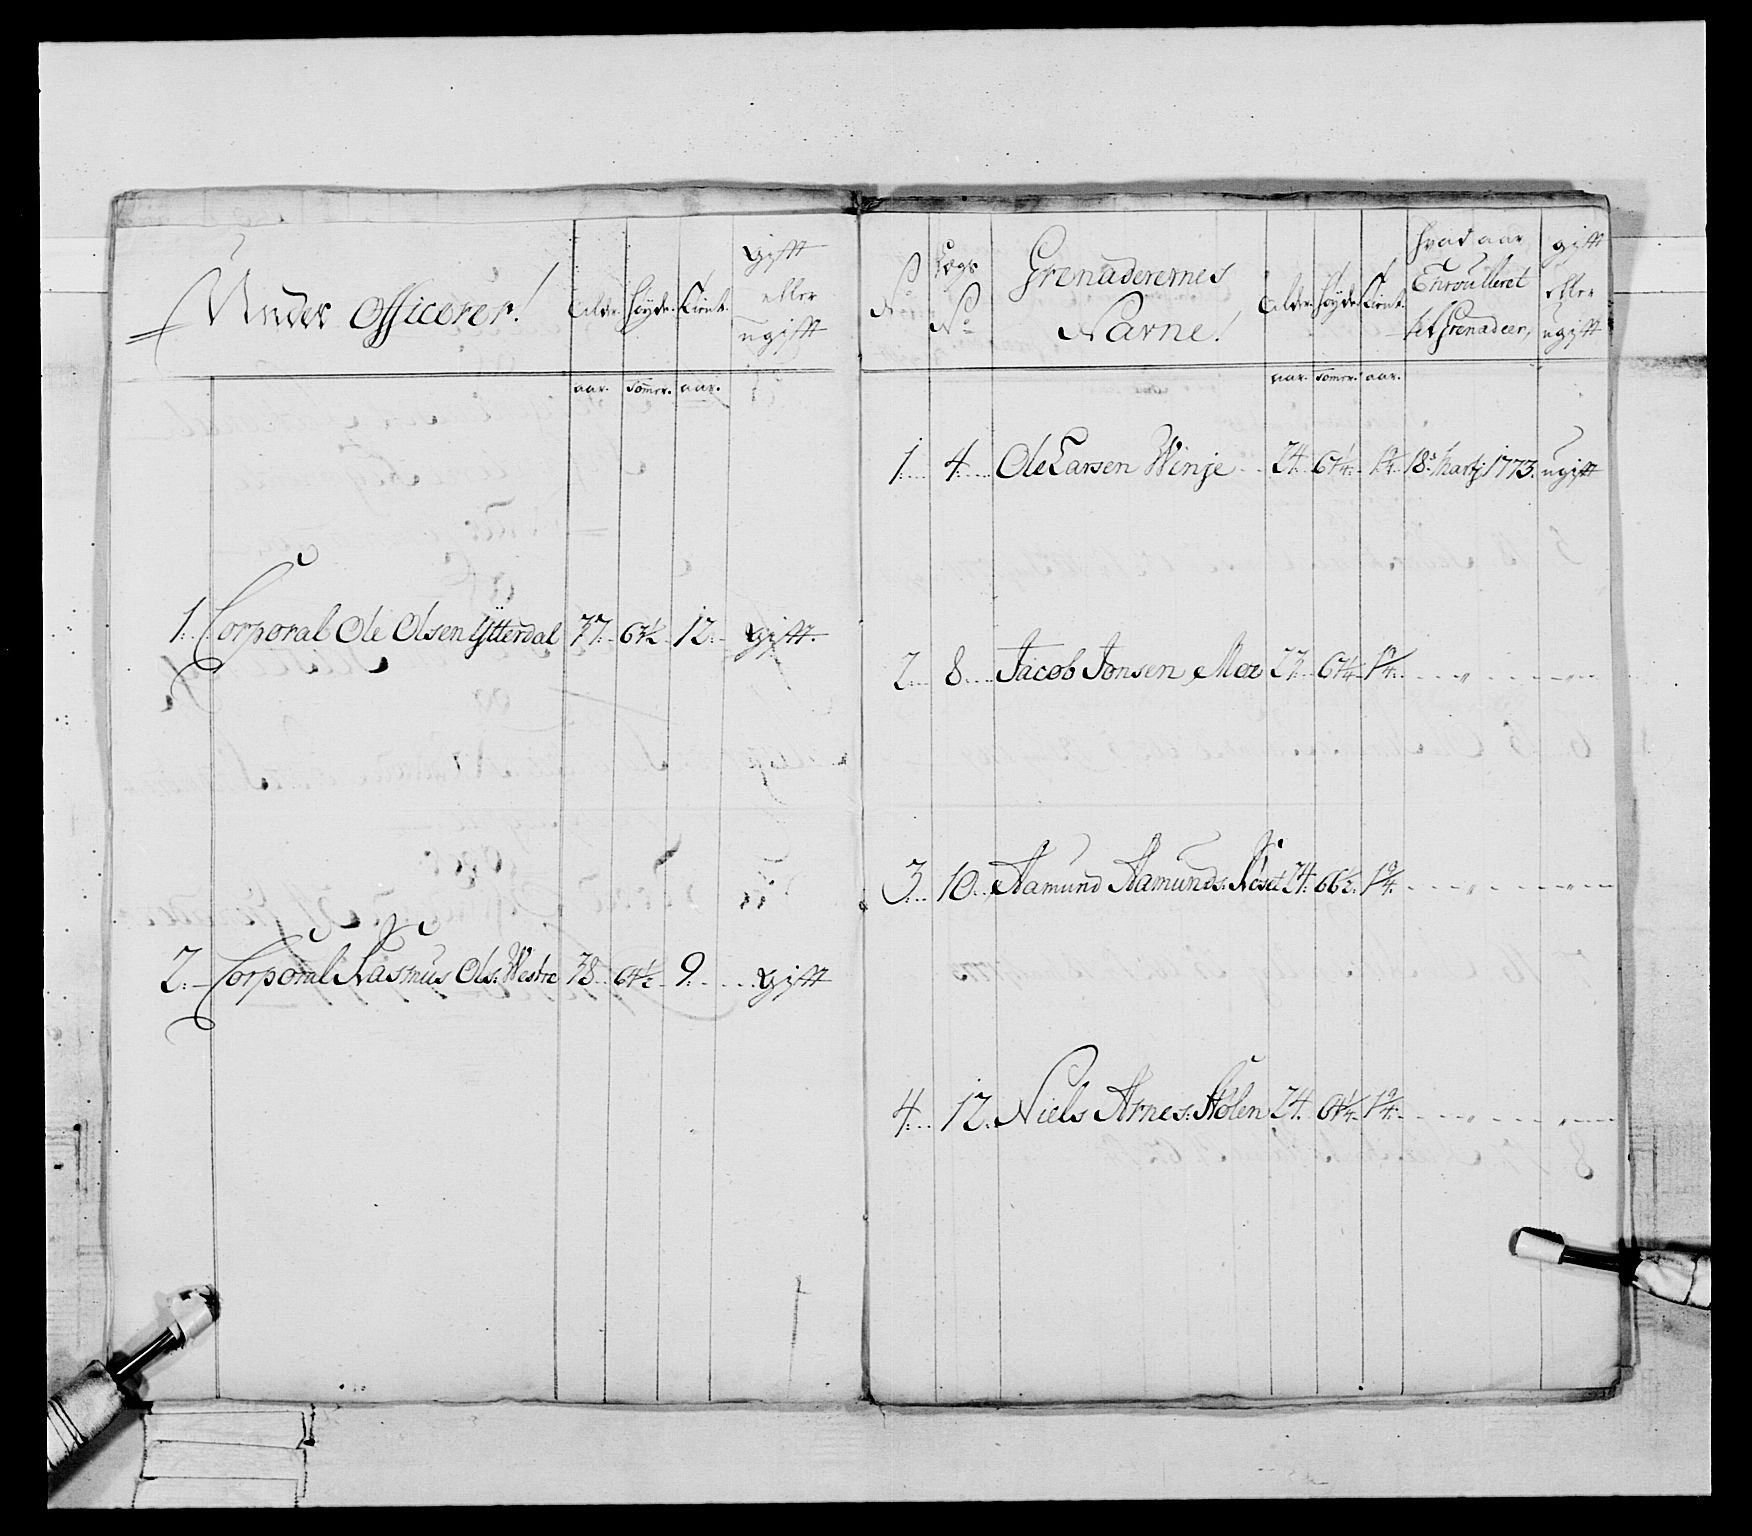 Under Officerer!
Alder.
Høyde.
Tient.
gift
eller
ugift
aar.
Tommer.
aar.
1. Corporal Ole Olsen Ytterdal 37. 67½ 12. gift.
2. Corporal Rasmus Ols: Westre 38. 64½ 9. gift
No
Lægs
No
Grenaderernes
Navne!
Alder.
Høyde.
Tient.
hvad aar
Enroulleret
til Grenadeer,
gift
eller
ugift
aar.
Tommer.
aar.
1. 4. Ole Larsen Winje 24. 67¼. 1¾. 18de Martj 1773. ugift
2. 8. Jacob Jonsen Moe 27. 67¼ 1¾. " "
3. 10. Aamund Aamunds: Røset 24. 66½. 1¾. " "
4. 12. Niels Arnes: Hølen 24. 64¼. 1¾. " "